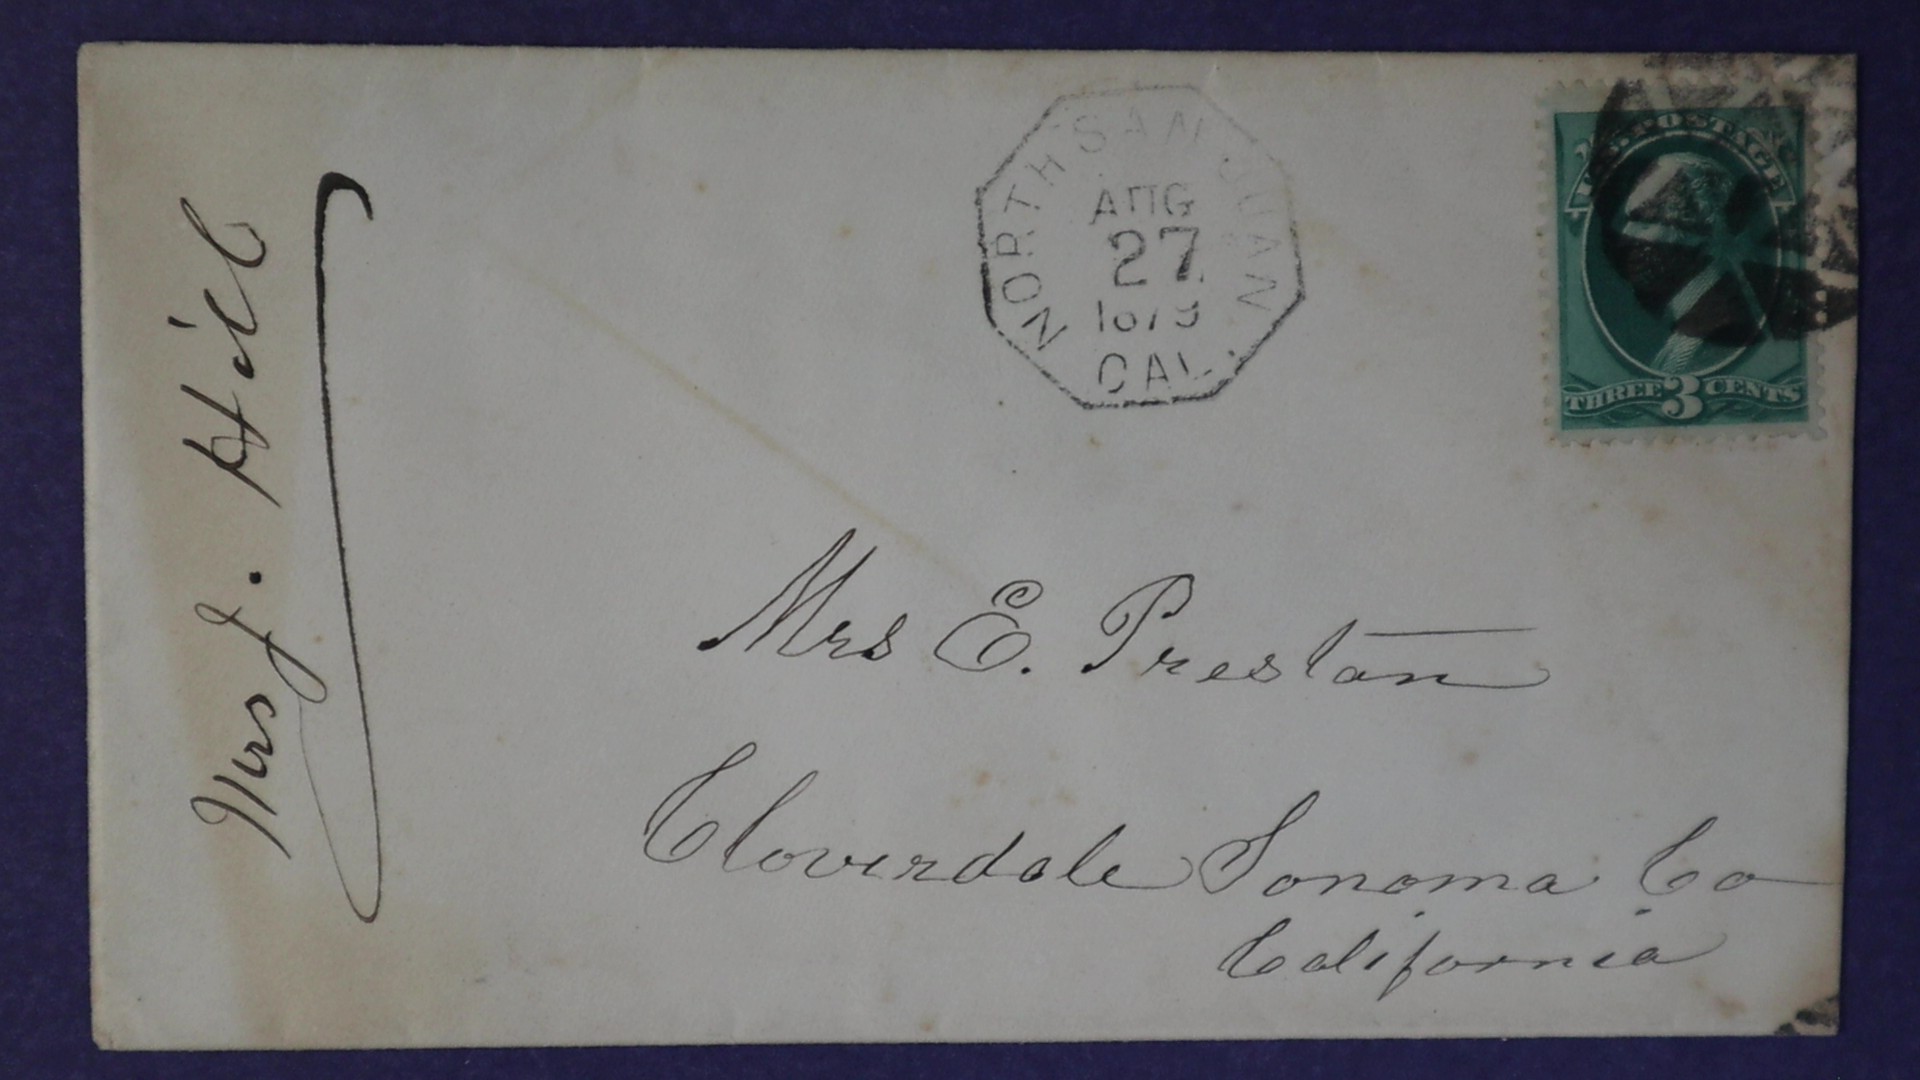 Mrs J. Hill
NORTH SAN JUAN
AUG
27
1879
CAL.
U.S. POSTAGE
THREE 3 CENTS
Mrs E. Preston
Cloverdale Sonoma Co
California